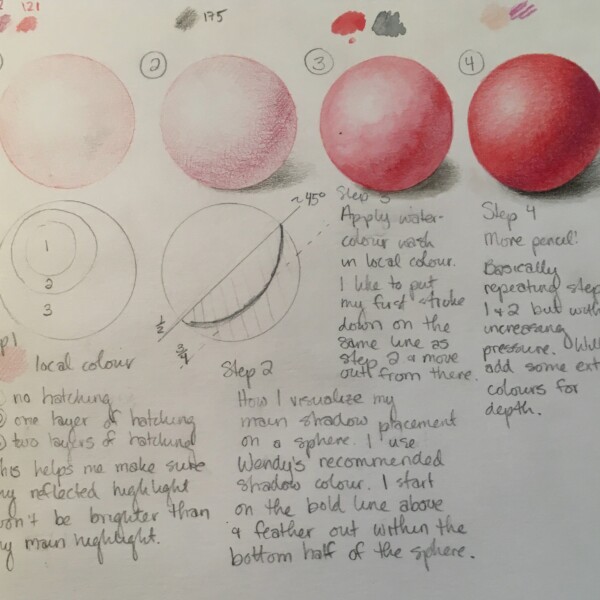 121
175
2
3
4
~45°
1
2
3
1/2
3/4
local colour
no hatching
one layer of hatching
two layers of hatching
helps me make sure
my reflected highlight
won't be brighter than
my main highlight.
Step 2
How I visualize my
main shadow placement
on a sphere. I use
Wendy's recommended
shadow colour. I start
on the bold line above
& feather out within the
bottom half of the sphere.
Step 3
Apply water-
colour wash
in local colour.
I like to put
my first stroke
down on the
same line as
step 2 & move
out from there.
Step 4
More pencil!
Basically
repeating step
1 & 2 but with
increasing
pressure. Will
add some ext
colours for
depth.